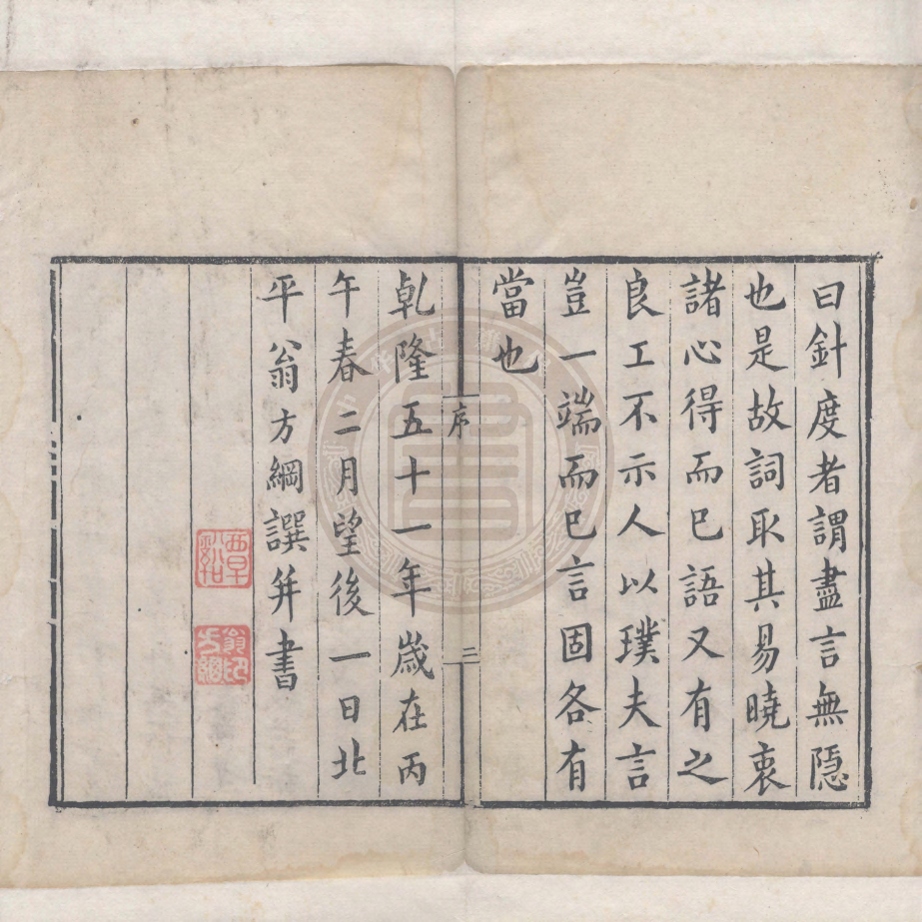 曰針度者謂盡言無隱
也是故詞取其易曉衷
諸心得而已語又有之
良工不示人以璞夫言
豈一端而已言固各有
當也
序
三
乹隆五十一年歲在丙
午春二月望後一日北
平翁方綱譔并書
覃谿
翁方綱印